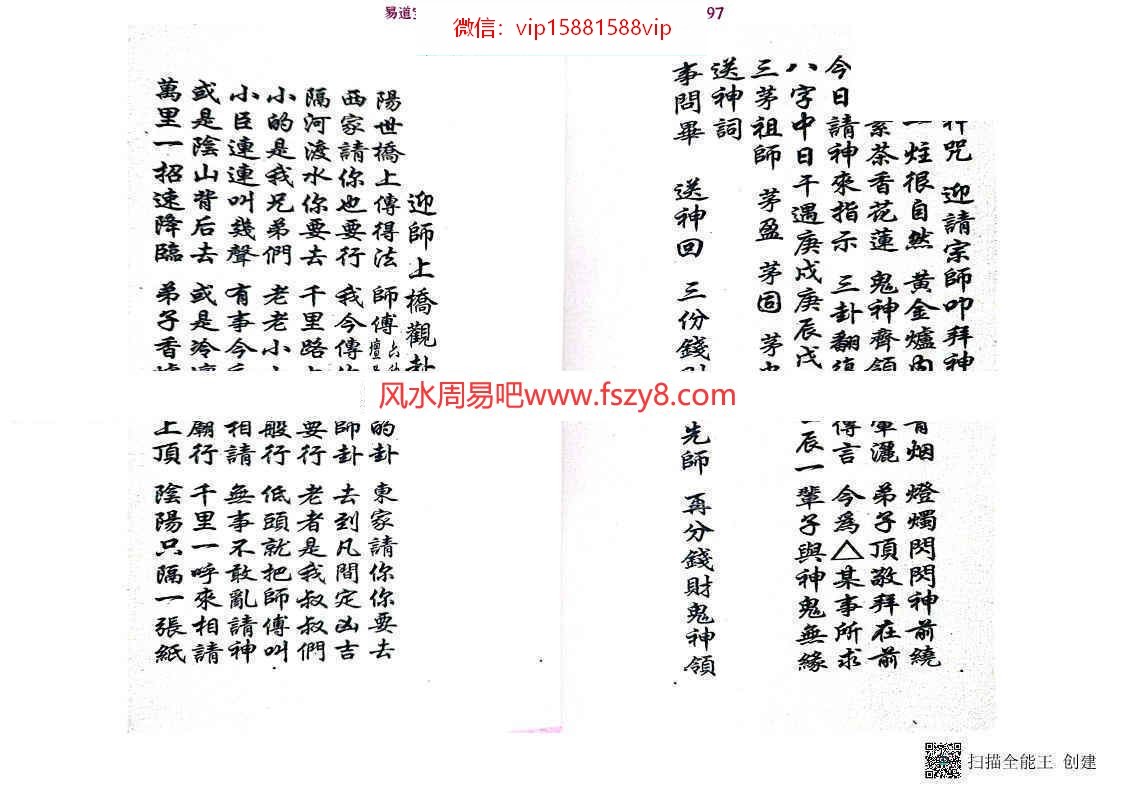 易道
97
微信：vip15881588vip
咒 迎請宗師叩拜神
一炷很自然 黃金爐內 烟 燈燭閃閃神前繞
茶香花蓮 鬼神齊領 灑 弟子頂敬拜在前
今日請神來指示 三卦翻 傳言 今爲△某事所求
八字中日干遇庚戌庚辰戊 辰一輩子與神鬼無緣
三茅祖師 茅盈 茅固 茅
送神詞
事問畢 送神回 三份錢 先師 再分錢財鬼神領
迎師上橋觀卦
陽世橋上傳得法 師傅 的卦 東家請你你要去
西家請你也要行 我今傳 師卦 去到凡間定凶吉
隔河渡水你要去 千里路 要行 老者是我叔叔們
小的是我兄弟們 老老小 般行 低頭就把師傅叫
小臣連連叫幾聲 有事今 相請 無事不敢亂請神
或是陰山背后去 或是冷 廟行 千里一呼來相請
萬里一招速降臨 弟子香 上頂 陰陽只隔一張紙
风水周易吧www.fszy8.com
扫描全能王 创建